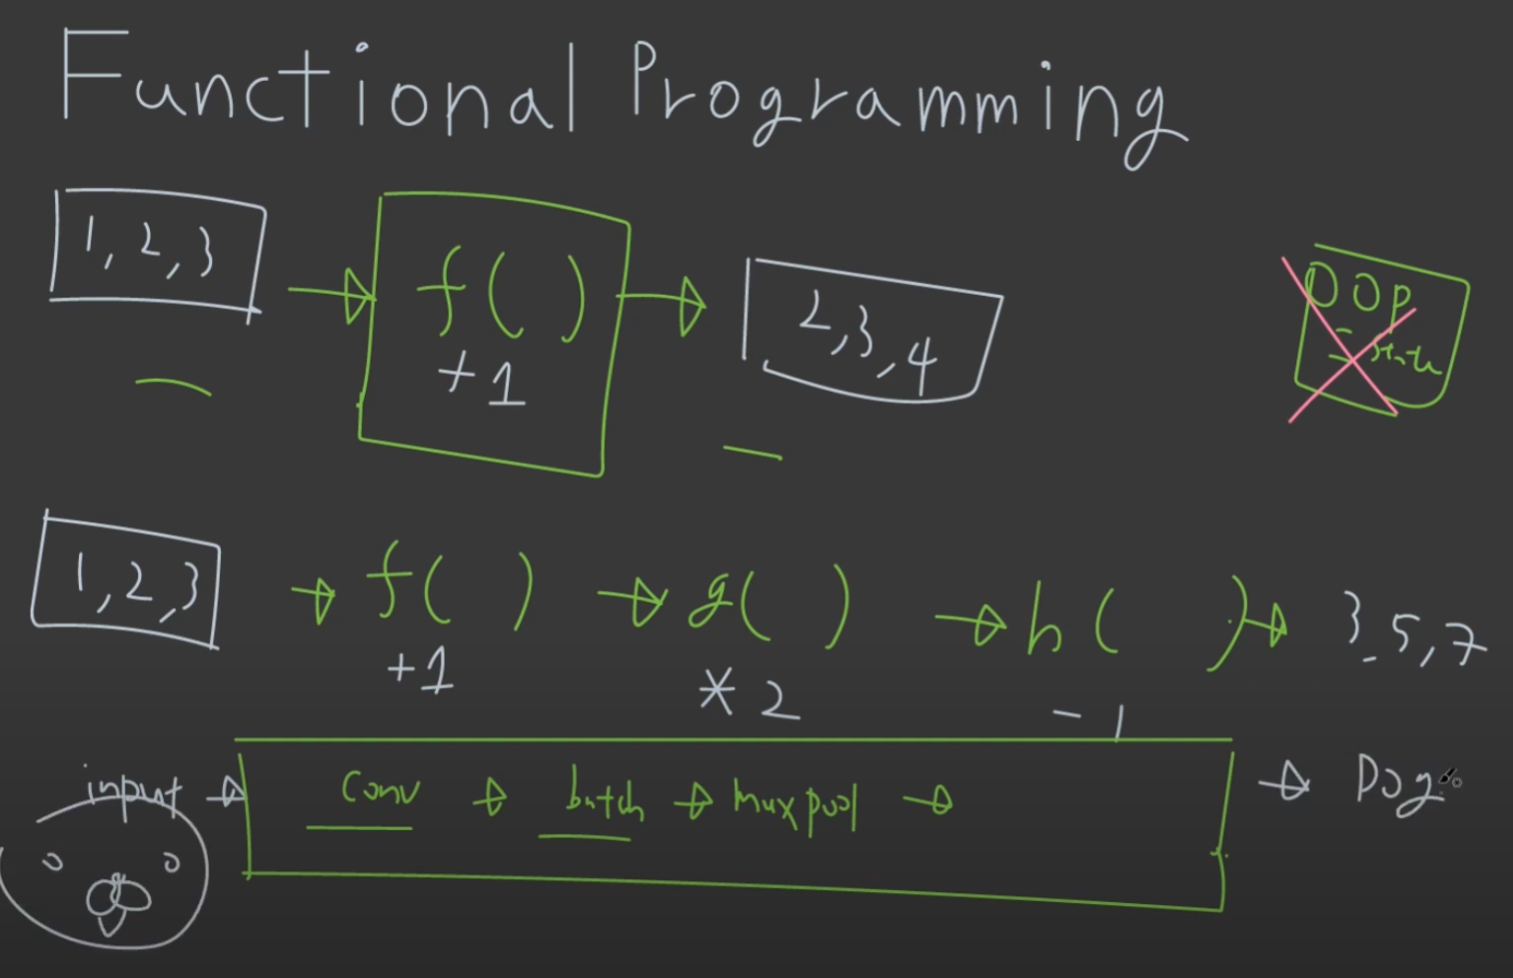 Functional Programming
1, 2, 3
f( )
+1
2, 3, 4
OOP
- state
1, 2, 3
f( )
g( )
h( )
3, 5, 7
+1
* 2
- 1
input
Conv
batch
maxpool
Dog